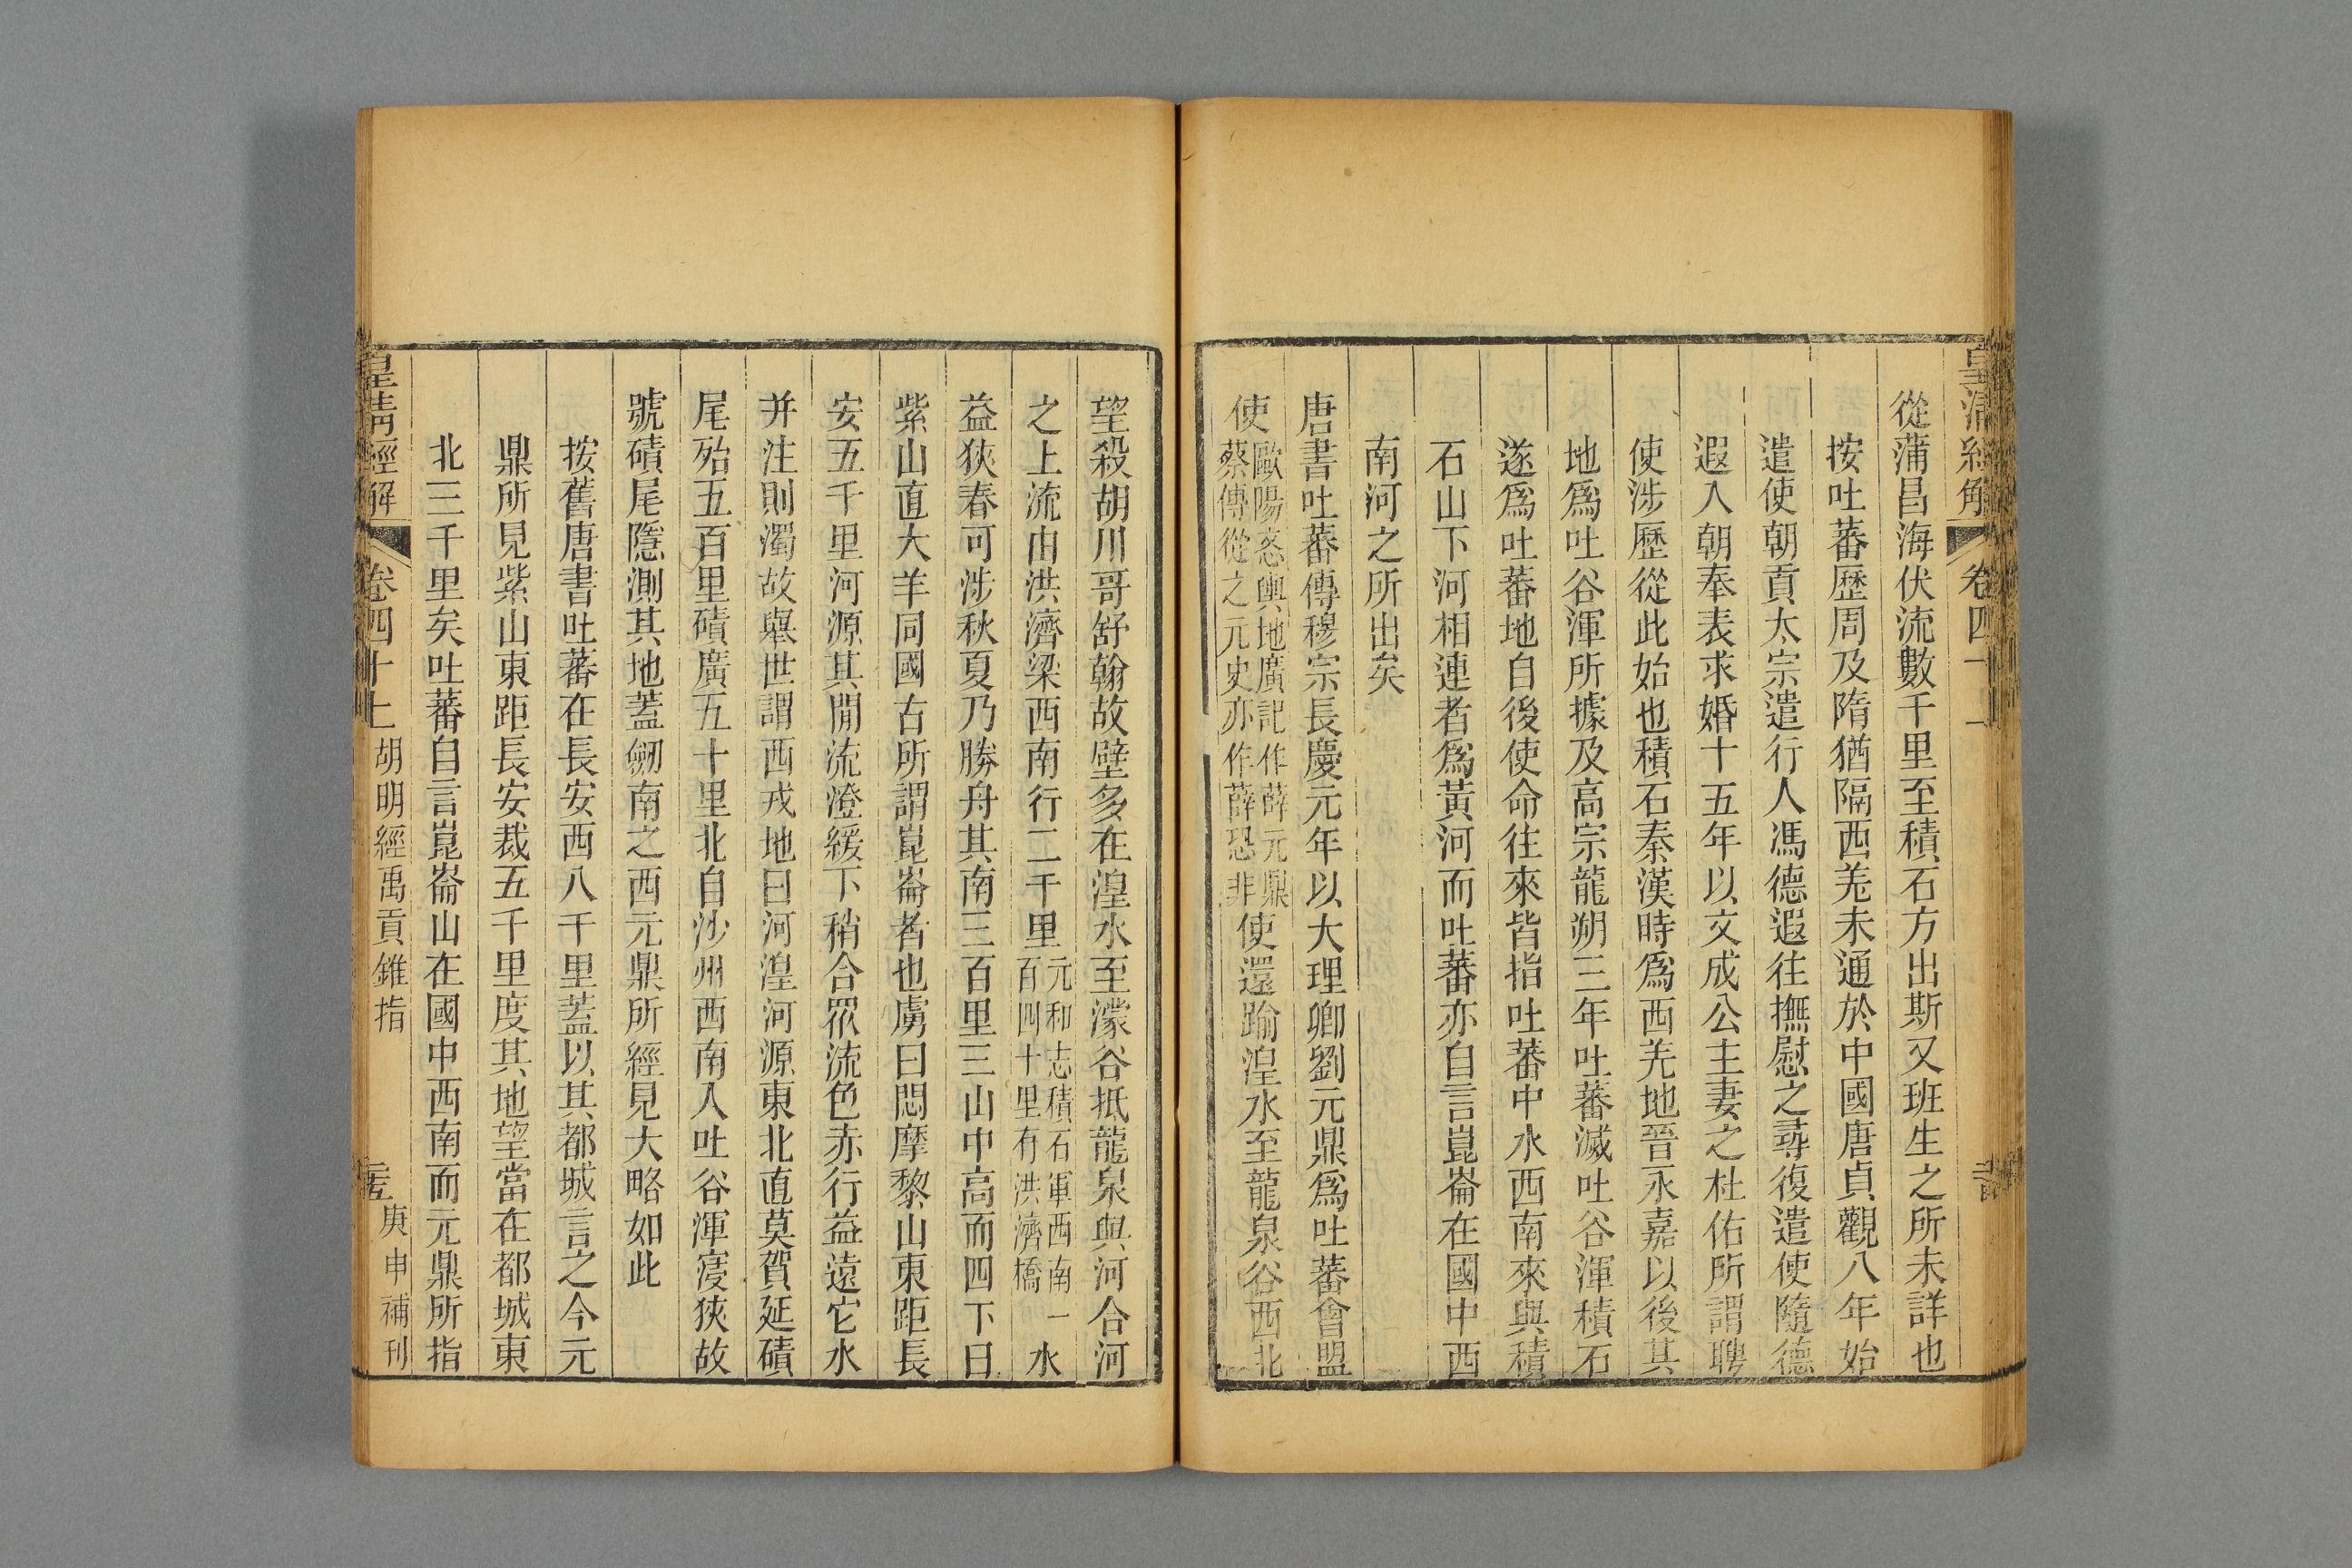 從蒲昌海伏流數千里至積石方出斯又班生之所未詳也
按吐蕃歷周及隋猶隔西羌未通於中國唐貞觀八年始
遣使朝貢太宗遣行人馮德遐往撫慰之尋復遣使隨德
遐入朝奉表求婚十五年以文成公主妻之杜佑所謂聘
使涉歷從此始也積石秦漢時爲西羌地晉永嘉以後其
地爲吐谷渾所據及高宗龍朔三年吐蕃滅吐谷渾積石
遂爲吐蕃地自後使命往來皆指吐蕃中水西南來與積
石山下河相連者爲黃河而吐蕃亦自言崑崙在國中西
南河之所出矣
唐書吐蕃傳穆宗長慶元年以大理卿劉元鼎爲吐蕃會盟
使歐陽忞輿地廣記作薛元鼎蔡傳從之元史亦作薛恐非使還踰湟水至龍泉谷西北
望殺胡川哥舒翰故壁多在湟水至濛谷抵龍泉與河合河
之上流由洪濟梁西南行二千里元和志積石軍西南一百四十里有洪濟橋水
益狹春可涉秋夏乃勝舟其南三百里三山中高而四下曰
紫山直大羊同國古所謂崑崙者也虜曰悶摩黎山東距長
安五千里河源其閒流澄緩下稍合眾流色赤行益遠它水
并注則濁故舉世謂西戎地曰河湟河源東北直莫賀延磧
尾殆五百里磧廣五十里北自沙州西南入吐谷渾寖狹故
號磧尾隱測其地蓋劒南之西元鼎所經見大略如此
按舊唐書吐蕃在長安西八千里蓋以其都城言之今元
鼎所見紫山東距長安裁五千里度其地望當在都城東
北三千里矣吐蕃自言崑崙山在國中西南而元鼎所指
皇清經解 卷四十七 胡明經禹貢錐指 庚申補刊